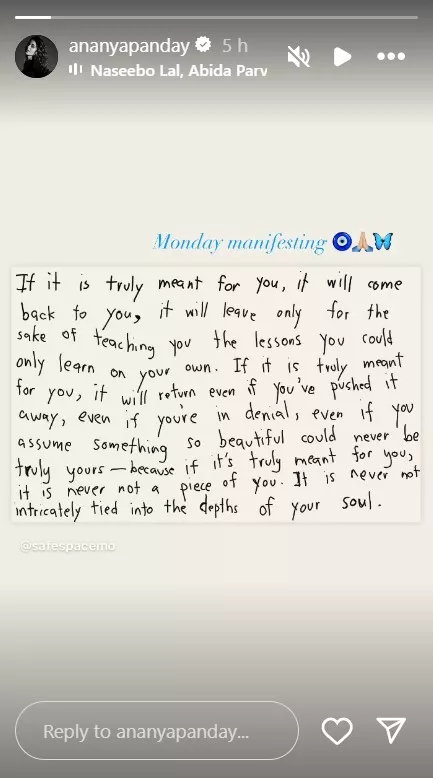 ananyapanday 5 h
Naseebo Lal, Abida Parv
Monday manifesting 🧿🙏🏼🦋
If it is truly meant for you, it will come
back to you, it will leave only for the
sake of teaching you the lessons you could
only learn on your own. If it is truly meant
for you, it will return even if you've pushed it
away, even if you're in denial, even if you
assume something so beautiful could never be
truly yours — because if it's truly meant for you,
it is never not a piece of you. It is never not
intricately tied into the depths of your soul.
@safespacemo
Reply to ananyapanday...